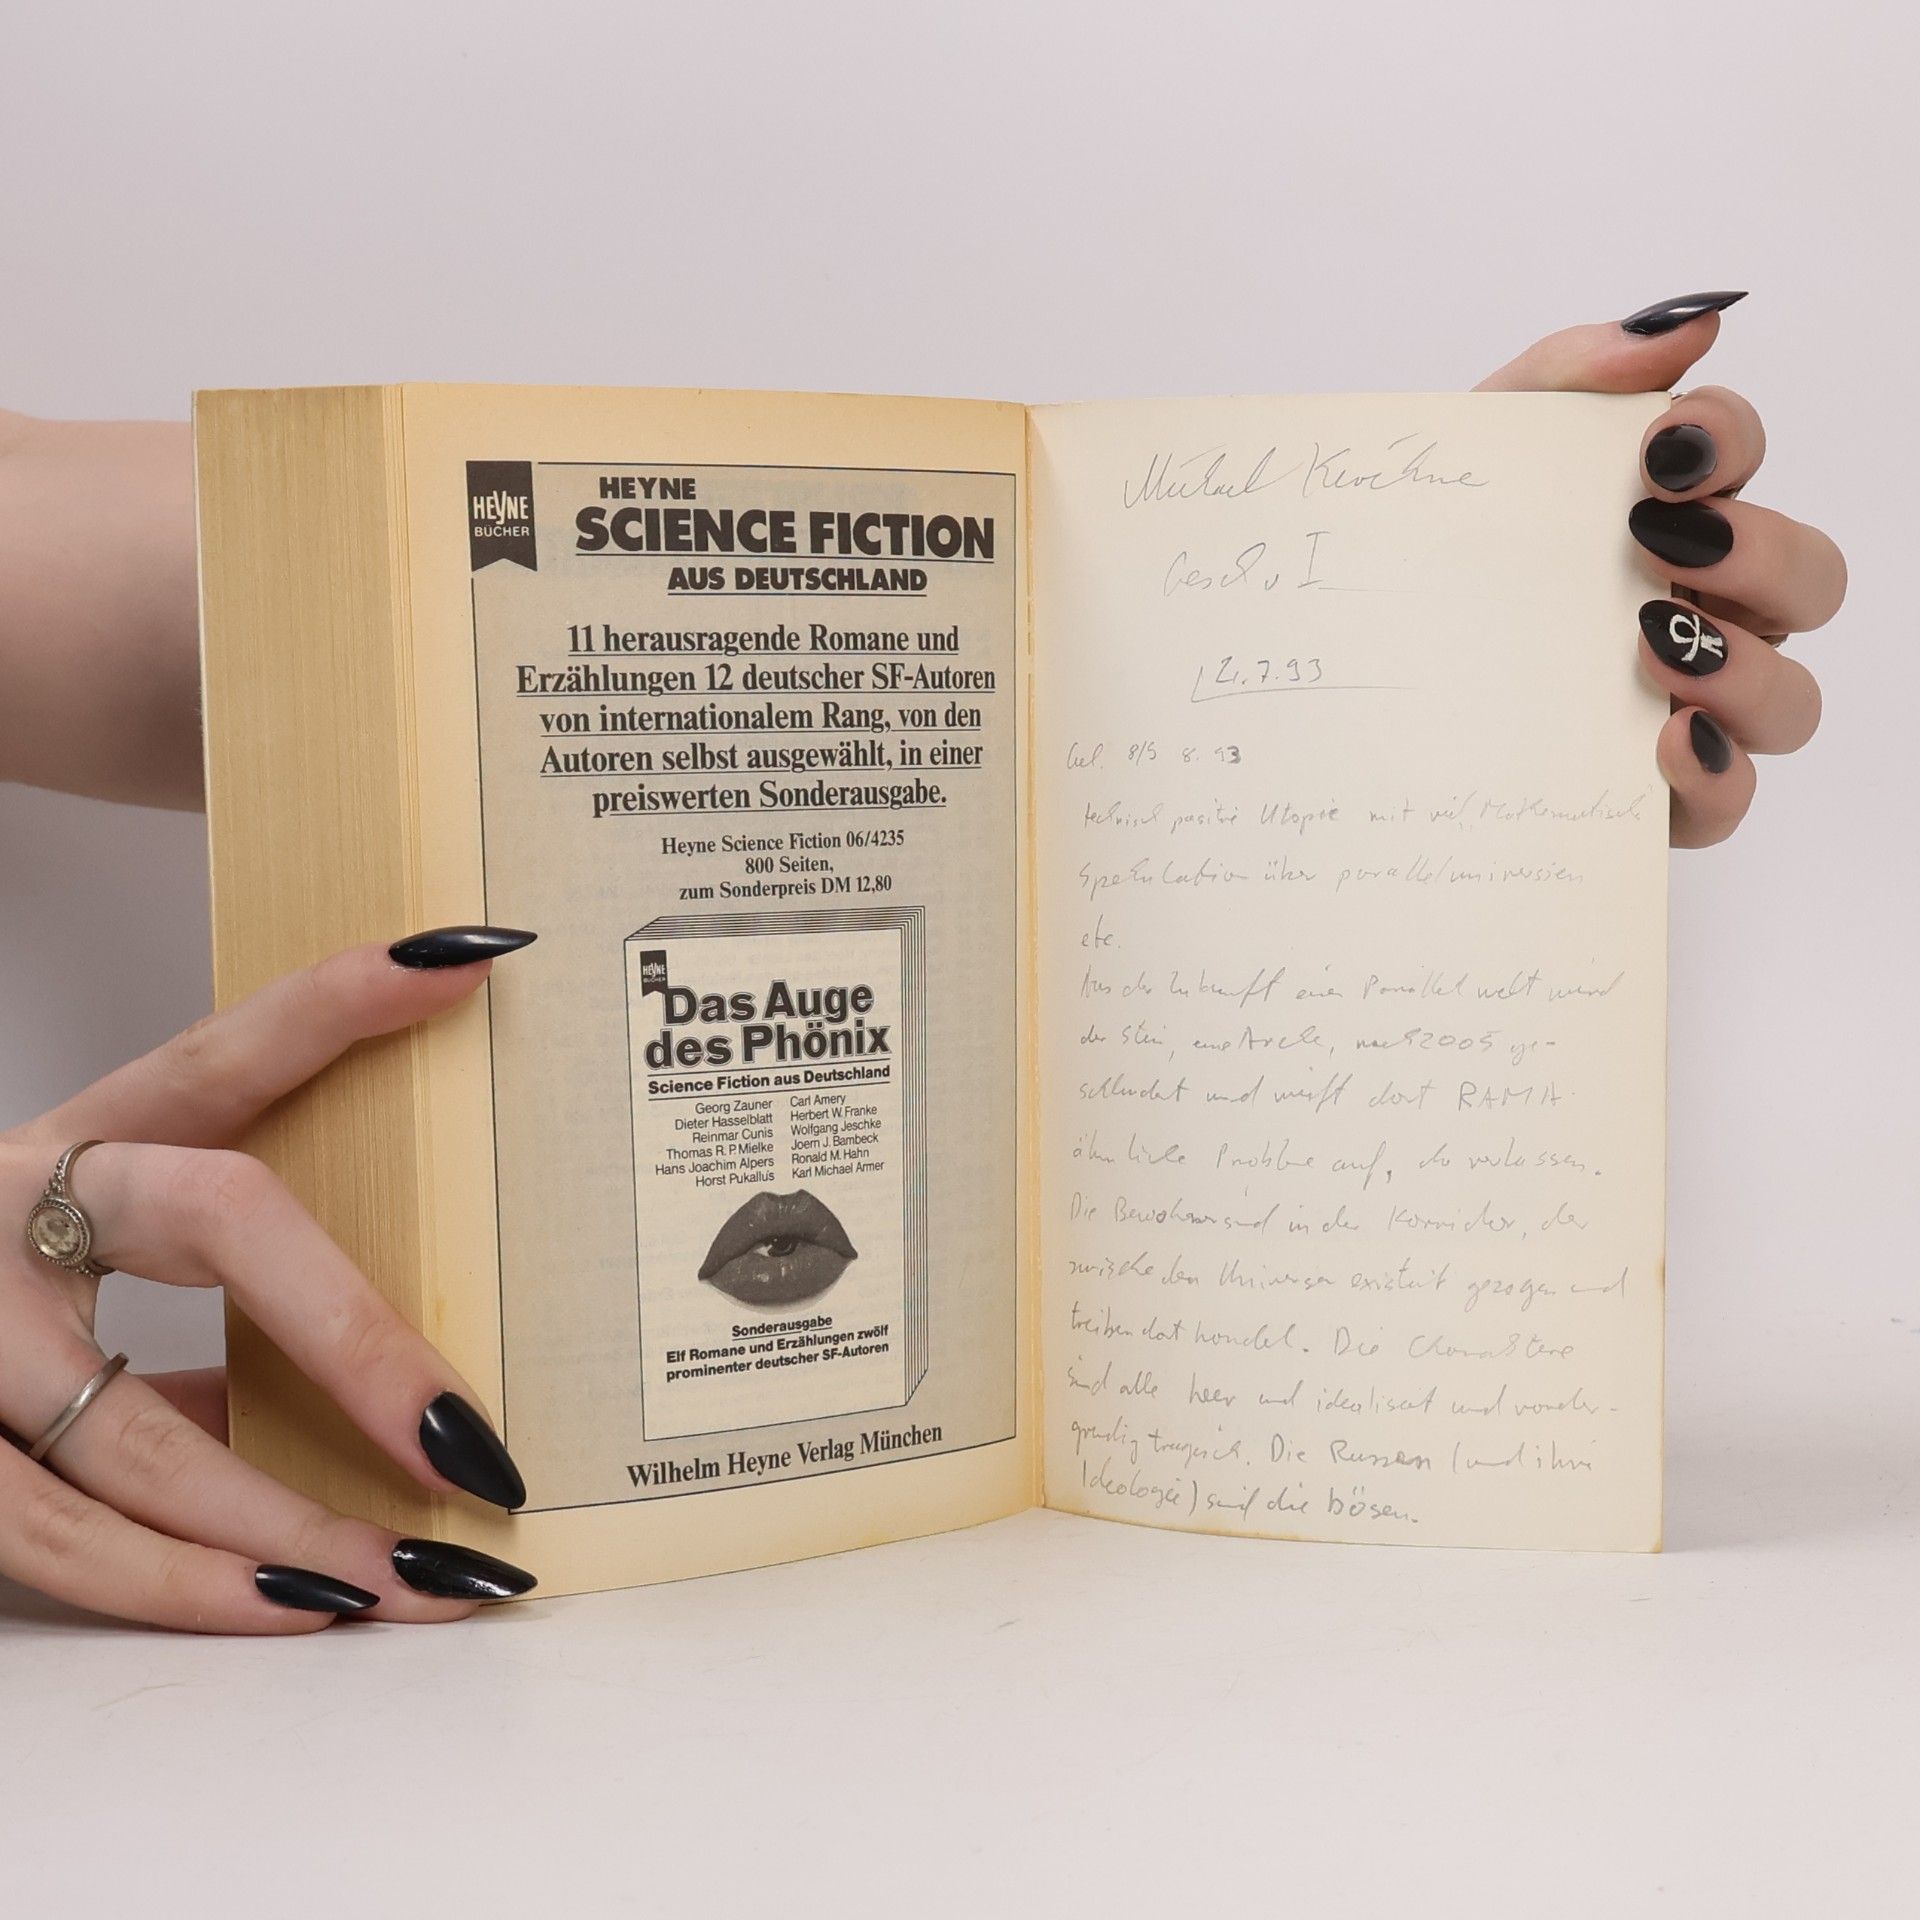 HEYNE
BÜCHER
HEYNE
SCIENCE FICTION
AUS DEUTSCHLAND
11 herausragende Romane und
Erzählungen 12 deutscher SF-Autoren
von internationalem Rang, von den
Autoren selbst ausgewählt, in einer
preiswerten Sonderausgabe.
Heyne Science Fiction 06/4235
800 Seiten,
zum Sonderpreis DM 12,80
HEYNE
BÜCHER
Das Auge
des Phönix
Science Fiction aus Deutschland
Georg Zauner
Dieter Hasselblatt
Reinmar Cunis
Thomas R. P. Mielke
Hans Joachim Alpers
Horst Pukallus
Carl Amery
Herbert W. Franke
Wolfgang Jeschke
Joern J. Bambeck
Ronald M. Hahn
Karl Michael Armer
Sonderausgabe
Elf Romane und Erzählungen zwölf
prominenter deutscher SF-Autoren
Wilhelm Heyne Verlag München
Michael
Gesch v I
7.93
Gel. 8/9 8. 93
technisch positive Utopie mit viel "Mathematisch"
Spekulation über paralleluniversien
etc.
Aus der Zukunft einer Parallel welt wird
der Stein, eine Arche, nach 2005 ge-
schleudert und wirft dort RAMA
ähnliche Probleme auf,
Die Bewohner sind in der Korridor, der
zwische den Universen existiert gezogen und
treiben dort handel. Die Charaktere
sind alle leer und idealisiert und vorder-
gründig tragisch. Die Russen (und ihre
Ideologie) sind die bösen.